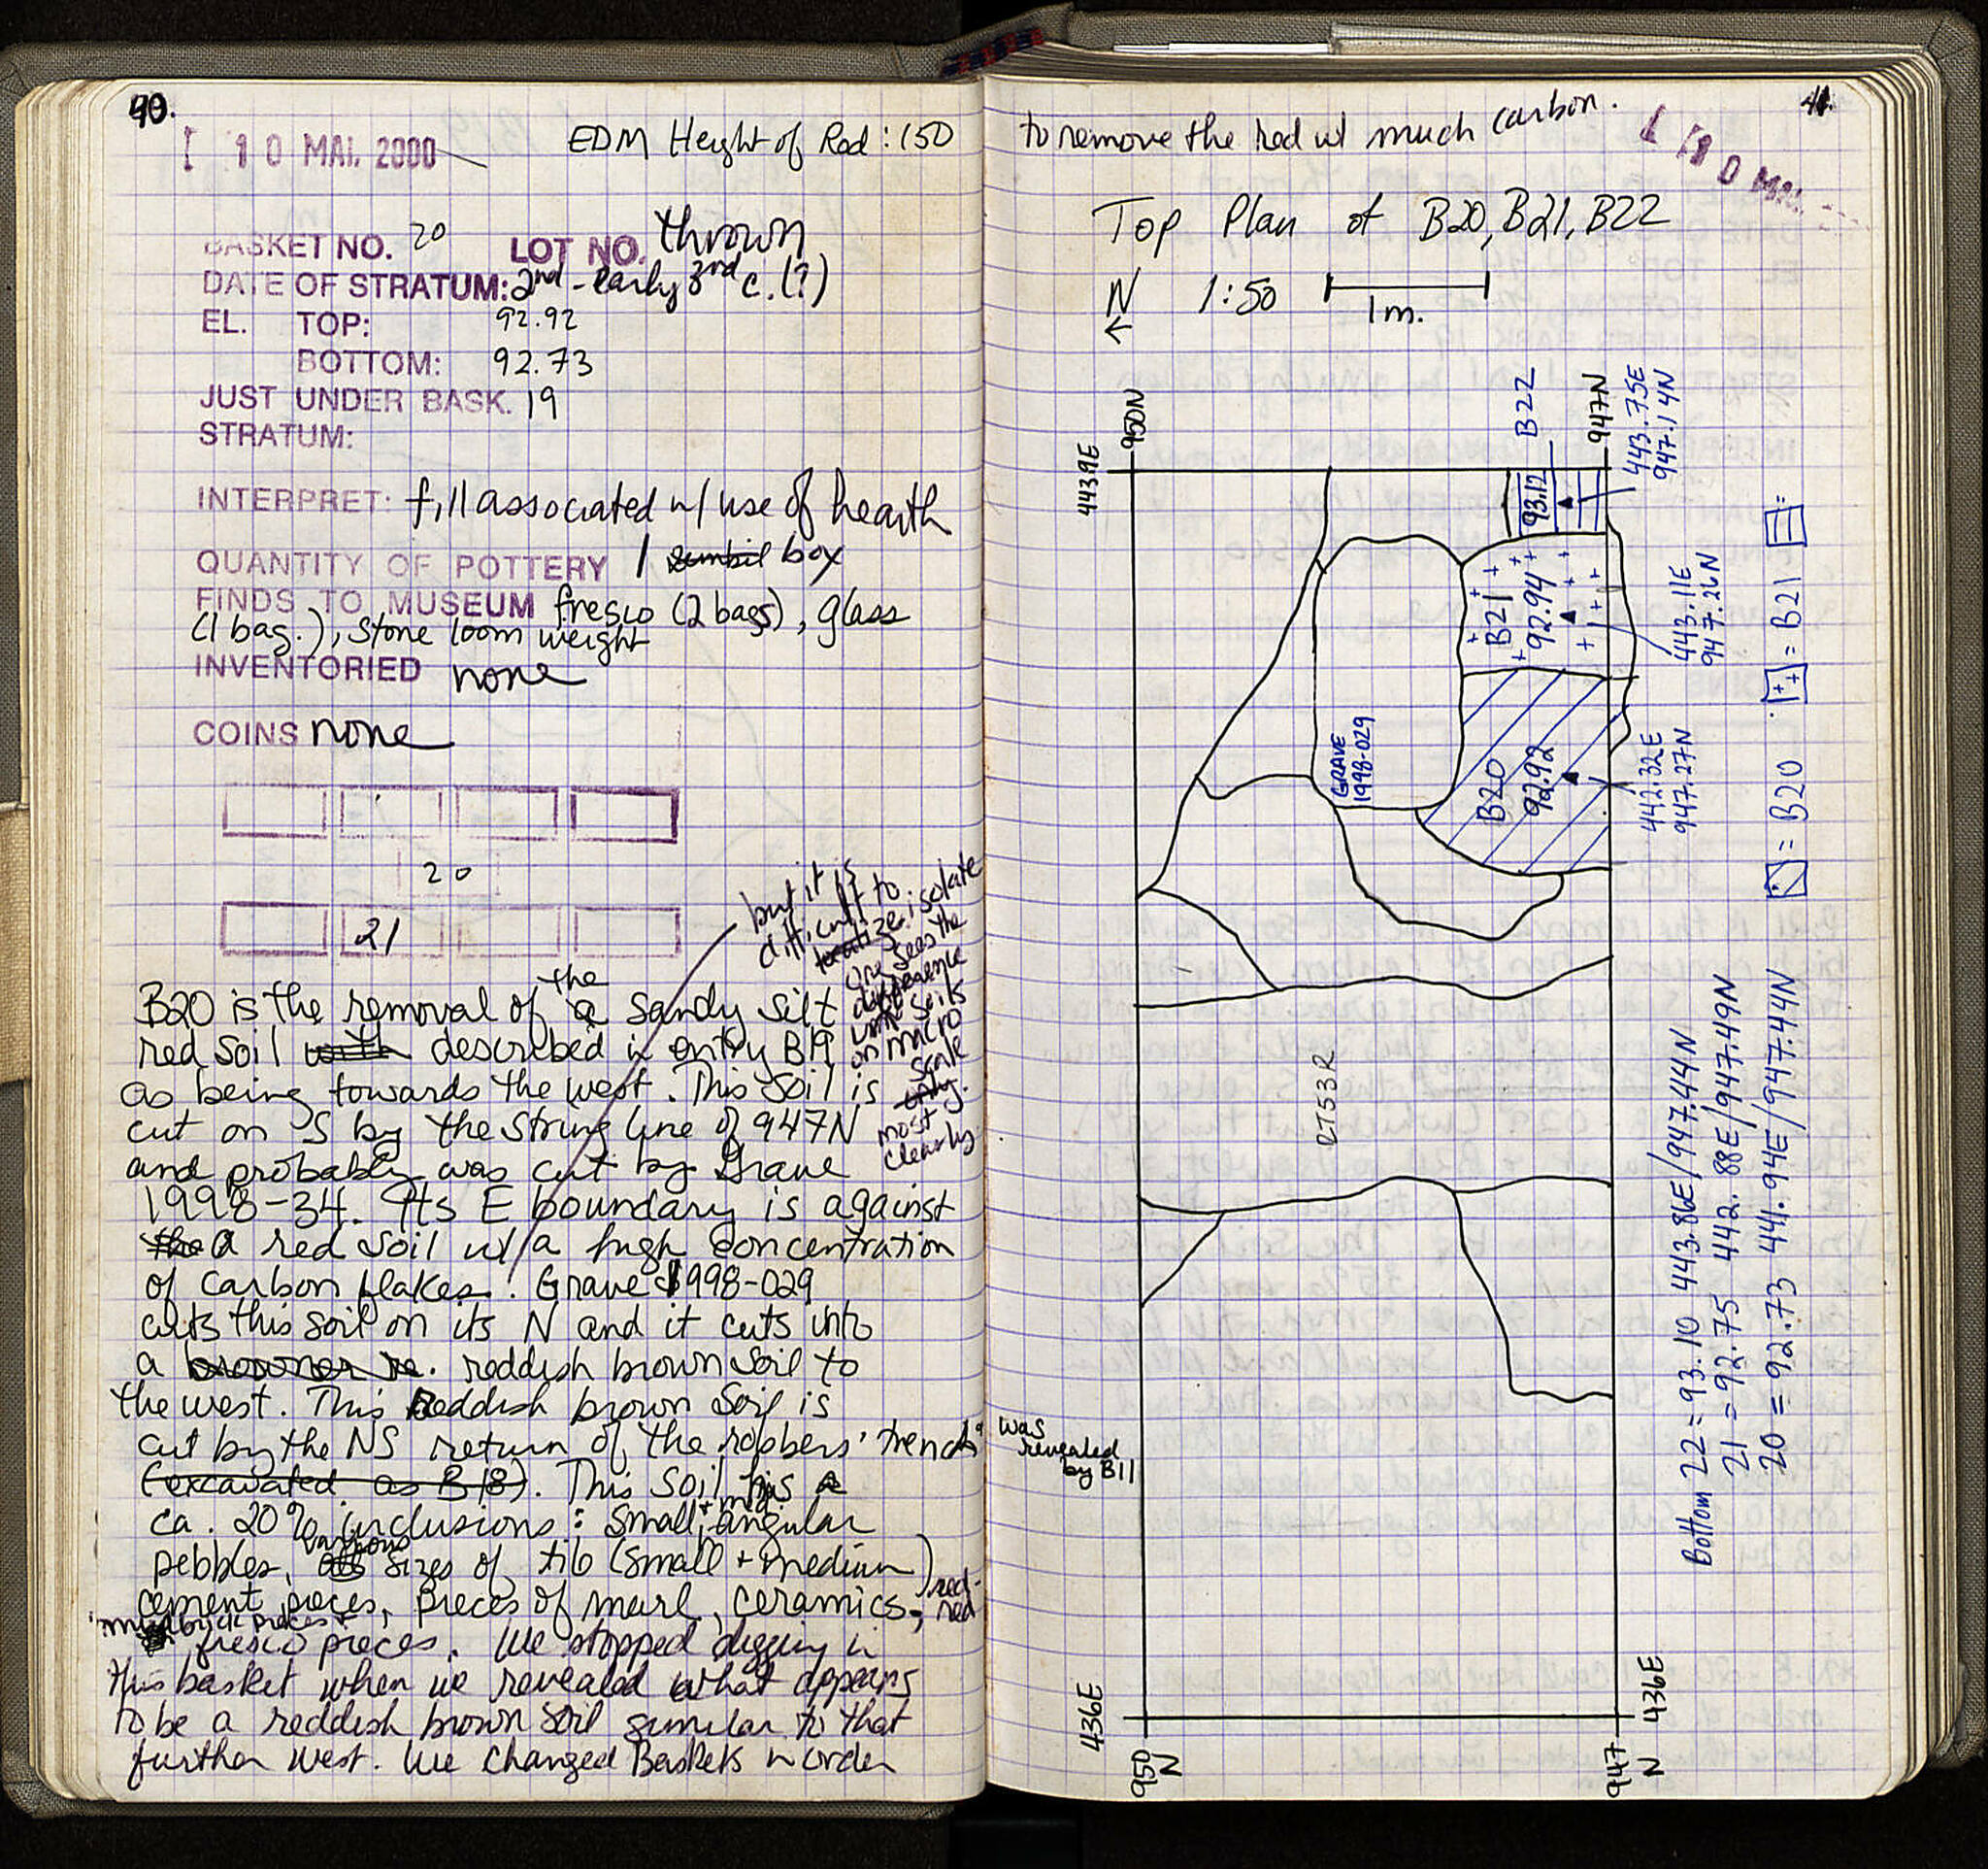 40.
10 MAI 2000
EDM Height of Rod: 150
BASKET NO. 20 LOT NO. thrown
DATE OF STRATUM: 2nd - early 3rd c. (?)
EL. TOP: 92.92
BOTTOM: 92.73
JUST UNDER BASK. 19
STRATUM:
INTERPRET: fill associated w/ use of hearth
QUANTITY OF POTTERY 1 zembil box
FINDS TO MUSEUM fresco (2 bags), glass
(1 bag.), stone loom weight
INVENTORIED none
COINS none
20
21
but it is
difficult to
isolate
one sees the
difference
soils
on macro
scale
only.
most
clearly
B20 is the removal of the a sandy silt
red soil with described in entry B19
as being towards the west. This soil is
cut on S by the string line of 947N
and probably was cut by Grave
1998-34. Its E boundary is against
the a red soil w/ a high concentration
of carbon flakes. Grave 1998-029
cuts this soil on its N and it cuts into
a browner re. reddish brown soil to
the west. This Reddish brown soil is
cut by the NS return of the robbers' trench
(excavated as B18). This soil has a
ca. 20% inclusions: small + med. angular
pebbles, various sizes of tile (small + medium)
cement pieces, pieces of marl, ceramics,
mudbrick pieces +
fresco pieces. We stopped digging in
this basket when we revealed what appears
to be a reddish brown soil similar to that
further west. We changed Baskets in order
41.
to remove the red w/ much carbon.
10 MAI
Top Plan of B20, B21, B22
N 1:50 1m.
443.9E
950N
B22
947N
443.75E
947.14N
93.12
B21
92.94
443.11E
947.26N
GRAVE
1998-029
B20
92.92
442.32E
947.27N
= B20
= B21
=
RT53R
was
revealed
by B11
Bottom 22 = 93.10 443.86E/947.44N
21 = 92.75 442.88E/947.49N
20 = 92.73 441.94E/947.44N
436E
950
N
947
N
436E